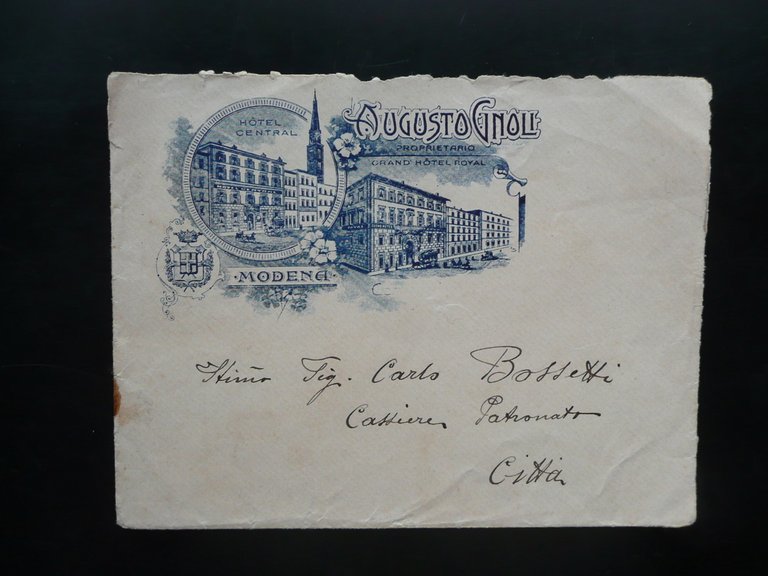 HÔTEL
CENTRAL
AUGUSTO GNOLI
PROPRIETARIO
GRAND HÔTEL ROYAL
MODENA
Stimo Sig. Carlo Bossetti
Cassiere Patronato
Città